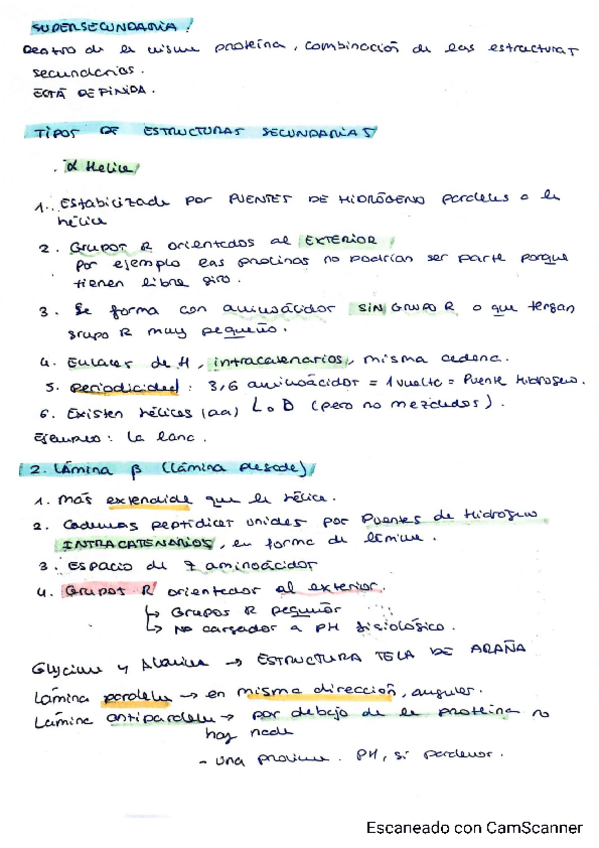 SUPERSECUNDARIA!
Dentro de la misma proteína, combinación de las estructuras
secundarias.
ESTÁ DEFINIDA.
TIPOS DE ESTRUCTURAS SECUNDARIAS
. α Helice
1. Estabilizada por PUENTES DE HIDRÓGENO paralelos a la
hélice
2. Grupos R orientados al EXTERIOR
Por ejemplo las prolinas no podrían ser parte porque
tienen libre giro.
3. Se forma con aminoácidos SIN GRUPO R o que tengan
grupo R muy pequeño.
4. Enlaces de H, intracatenarios, misma cadena.
5. periodicidad: 3,6 aminoácidos = 1 vuelta = Puente Hidrogeno.
6. Existen hélices (aa) L o D (pero no mezclados).
Ejemplo: La lana.
2. Lámina β (Lámina plegada)
1. más extendida que la hélice.
2. Cadenas peptídicas unidas por Puentes de Hidrogeno
INTRACATENARIOS, en forma de lámina.
3. Espacio de 7 aminoácidos
4. Grupos R orientados al exterior.
↳ Grupos R pequeños
↳ No cargados a PH fisiológico.
Glycina y Alanina → ESTRUCTURA TELA DE ARAÑA
Lámina paralela → en misma dirección, angular.
Lámina antiparalela → por debajo de la proteína no
hay nada
- una . PH, si
Escaneado con CamScanner